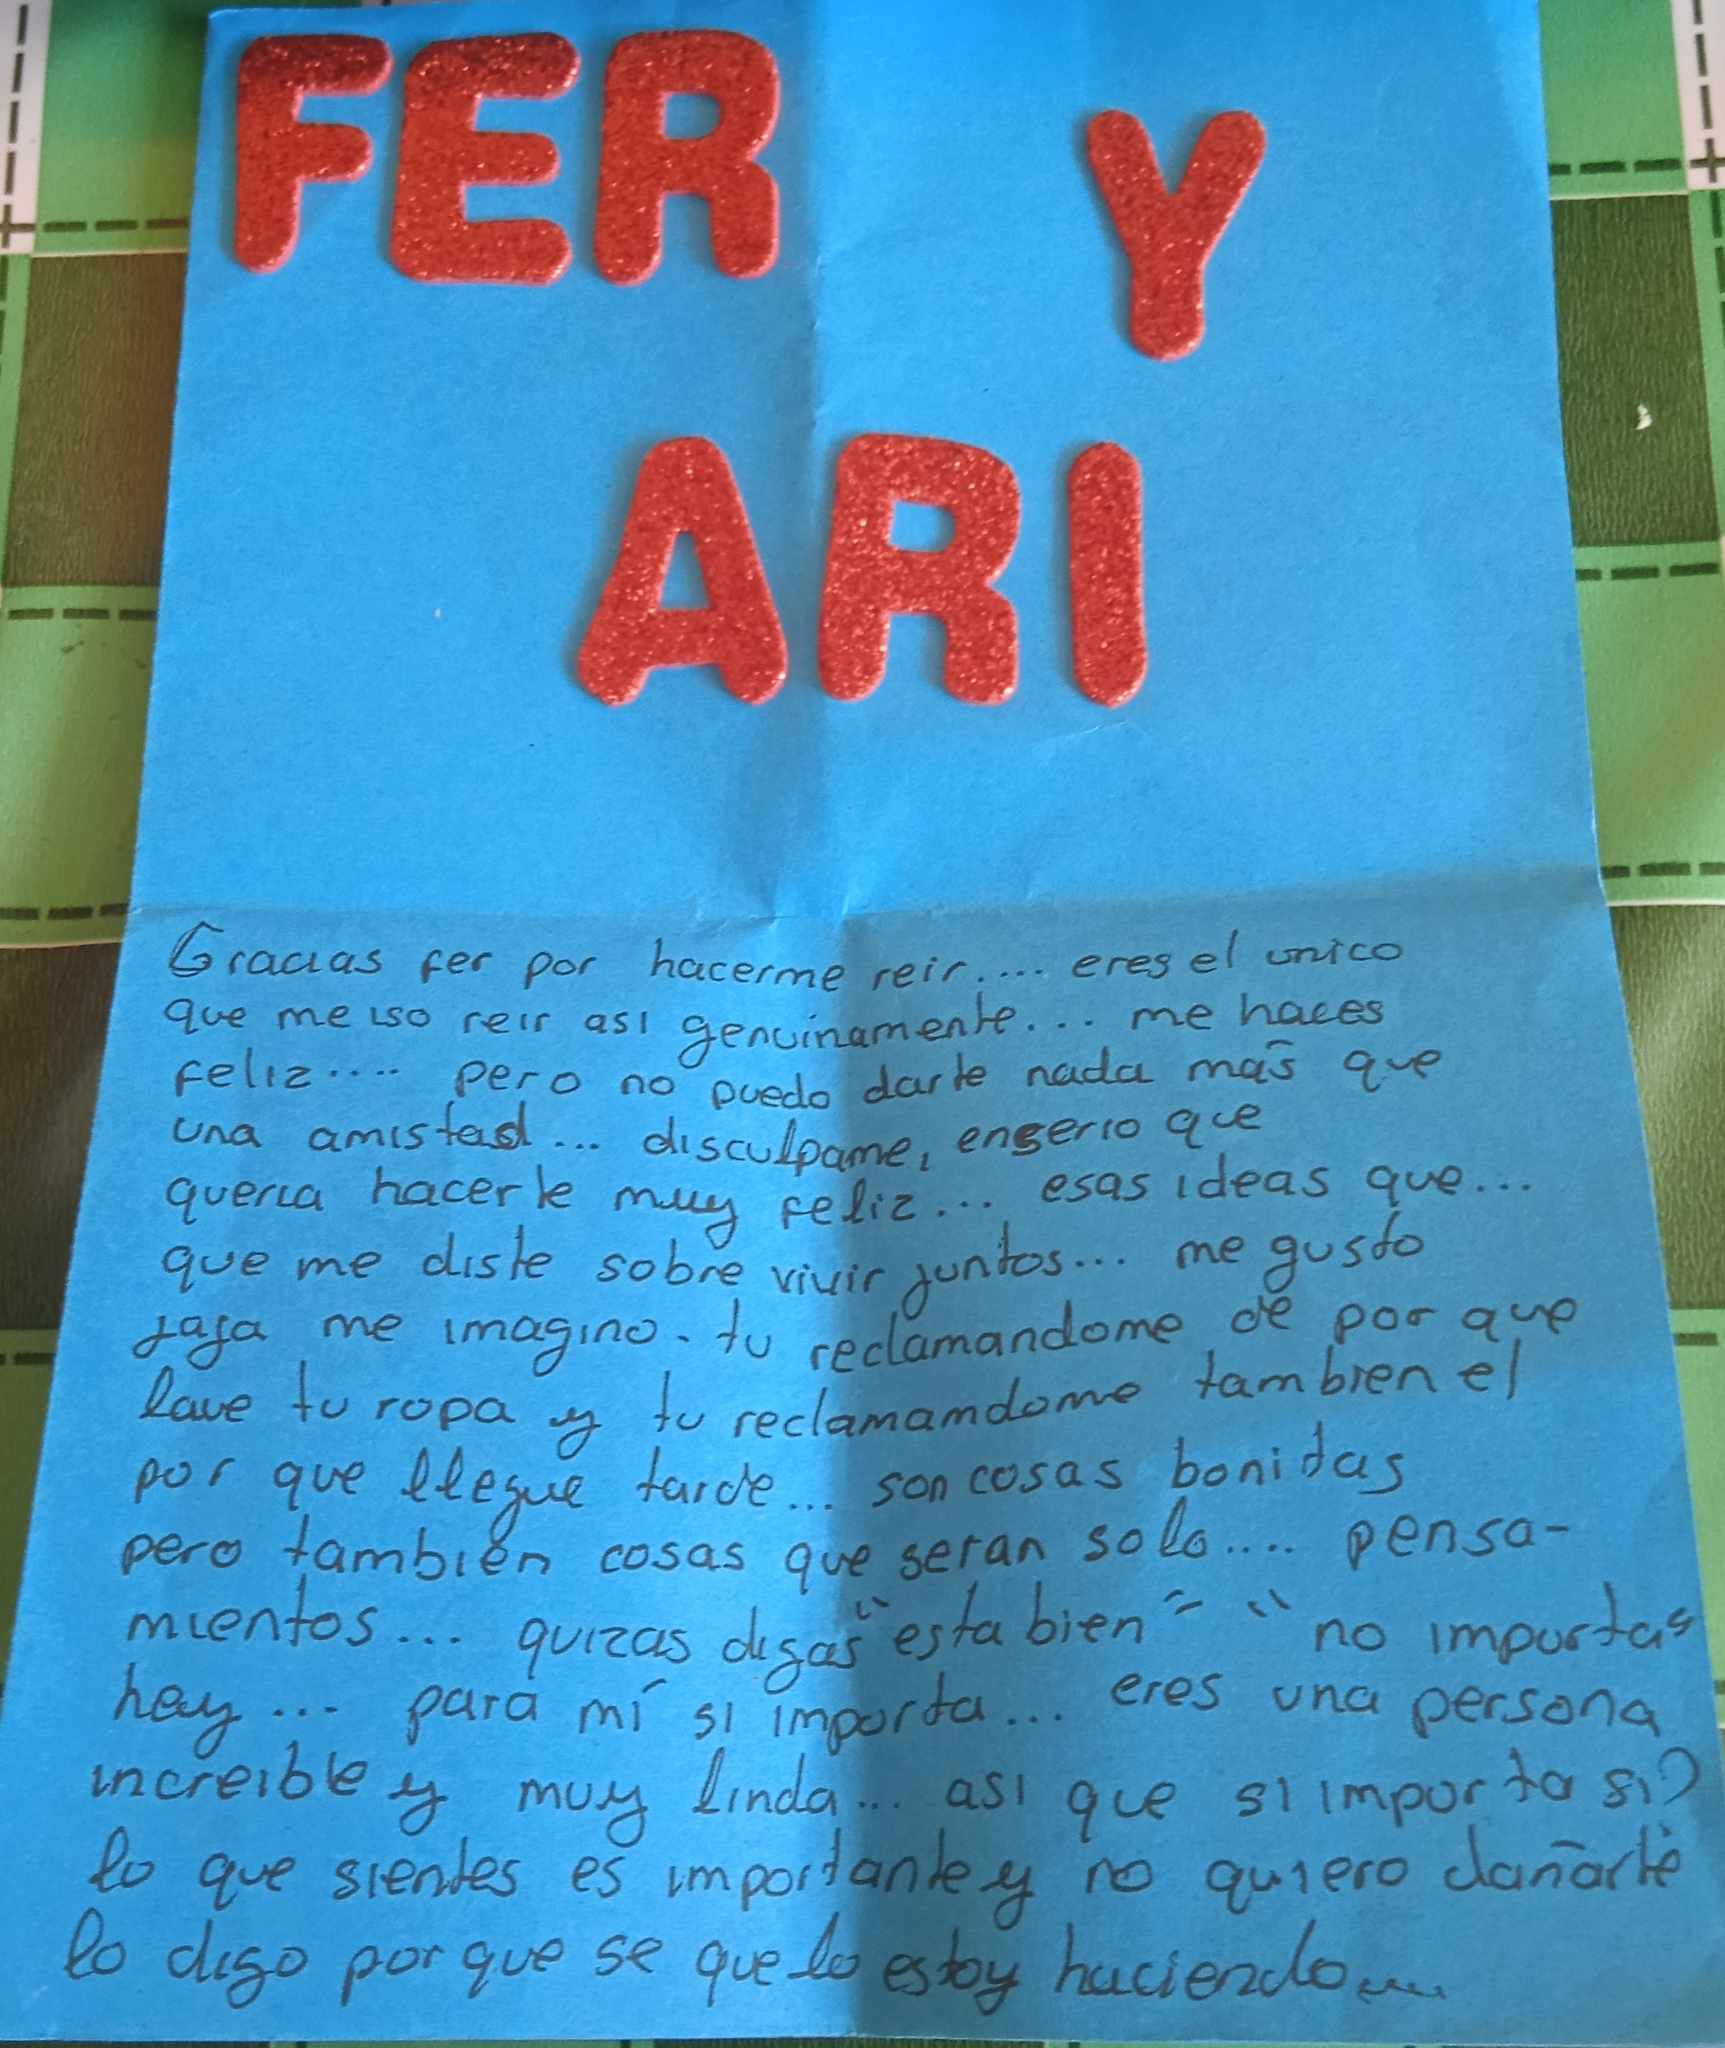 FER Y
ARI
Gracias fer por hacerme reir.... eres el unico
que me iso reir asi genuinamente... me haces
feliz.... pero no puedo darte nada más que
una amistad... disculpame, enserio que
queria hacerte muy feliz... esas ideas que...
que me diste sobre vivir juntos... me gusto
jaja me imagino. tu reclamandome de por que
lave tu ropa y tu reclamamdome tambien el
por que llegue tarde... son cosas bonitas
pero también cosas que seran solo.... pensa-
mientos... quizas digas "esta bien" "no importas
hay... para mí si importa... eres una persona
increible y muy linda... asi que si importa si?
lo que sientes es importante y no quiero dañarte
lo digo por que se que lo estoy haciendo....